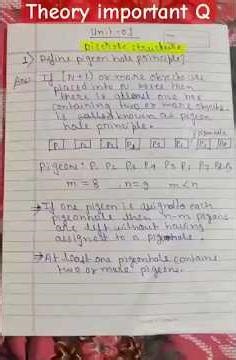 Theory important Q
Unit-01
Discrete structure
1) Define pigeon hole principle?
Ans: If (n+1) or more objects are
placed into n boxes then
there is atleast one box
containing two or more objects
is called known as pigeon
hole principle.
pigeonhole
Pigeons: P1 P2 P3 P4 P5 P6 P7 P8 P9
m = 8 n = 9 m < n
→ If one pigeon is assigned to each
pigeonhole then n-m pigeons
are left without having
assigned to a pigeonhole.
→ At least one pigeonhole contains
two or more pigeons.